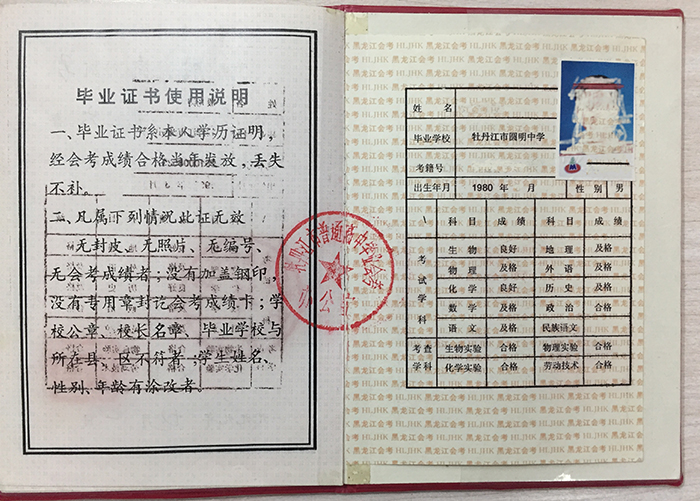 毕业证书使用说明
一、毕业证书系本人学历证明，
经会考成绩合格当年发放，丢失
不补。
二、凡属下列情况此证无效：
无封皮、无照片、无编号、
无会考成绩者；没有加盖钢印，
没有专用章封讫会考成绩卡；学
校公章、校长名章、毕业学校与
所在县、区不符者；学生姓名、
性别、年龄有涂改者。
黑龙江省普通高中毕业会考
办公室
黑龙江会考 HLJHK
姓 名
毕业学校 牡丹江市圆明中学
考籍号
出生年月 1980 年 月 性 别 男
\ 科 目 成 绩 科 目 成 绩
考试学科 生 物 良好 地 理 及格
物 理 及格 外 语 及格
化 学 良好 历 史 及格
数 学 及格 政 治 合格
语 文 及格 民族语文
考查学科 生物实验 合格 物理实验 合格
化学实验 合格 劳动技术 合格